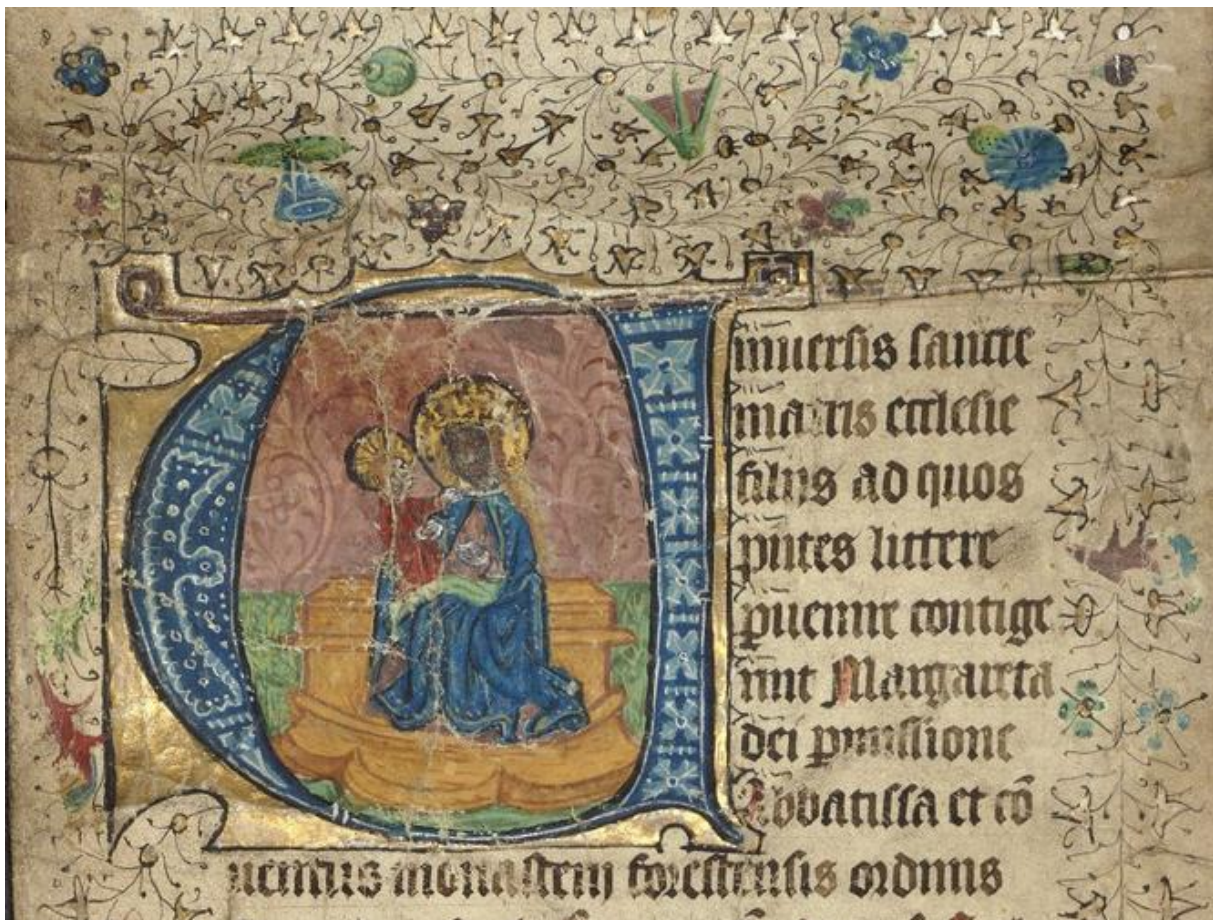 Uniuersis sancte
matris ecclesie
filiis ad quos
pn̄tes littere
ꝑuenire contige
rint Margareta
dei ꝑmissione
Abbatissa et cō
uentus monasterij forestensis ordinis